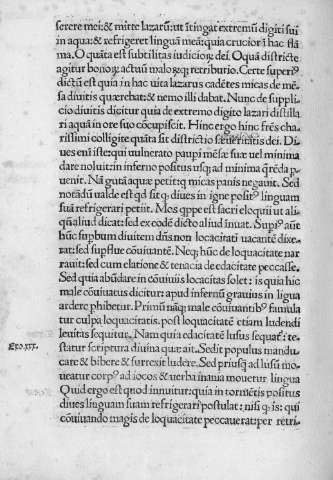 serere mei: & mitte lazarũ: ut ĩtingat extremũ digiti sui
in aqua: & refrigeret linguã meã: quia crucior ĩ hac flã
ma. O quãta est subtilitas iudicioꝝ dei. O quã districte
agitur bonoꝝ actuũ maloꝝq; retributio. Certe superiꝰ
dictũ est quia in hac uita lazarus cadẽtes micas de mẽ
sa diuitis quærebat: & nemo illi dabat. Nunc de suppli
cio diuitis dicitur quia de extremo digito lazari distilla
ri aquã in ore suo cõcupiscit. Hinc ergo hinc frẽs cha
rissimi colligite quãta sit districtio sæueritatis dei. Di
ues enĩ iste: qui uulnerato paupi mẽsæ suæ uel minima
dare noluit: in inferno positus usq; ad minima q̃rẽda p
uenit. Nã gutã aquæ petiit: q micas panis negauit. Sed
notãdũ ualde est qd sit q̱ diues in igne positꝰ linguam
suã refrigerari petiit. Mos q̃ppe est sacri eloquii ut ali
qñ aliud dicat: sed ex eodẽ dicto aliud ĩnuat. Supiꝰ aũt
hũc supbum diuitem dñs non locacitati uacantẽ dixe
rat: sed supflue cõuiuantẽ. Neq; hũc de loquacitate nar
rauit: sed cum elatione & tenacia de edacitate peccasse.
Sed quia abũdare in cõuiuiis locacitas solet: is quia hic
male cõuiuatus dicitur: apud infernũ grauius in ligua
ardere phibetur. Primũ nãq; male cõuiuantibꝰ famula
tur culpa loquacitatis. post loquacitatẽ etiam ludendi
leuitas sequitur. Nam quia edacitatẽ lusus sequat̃: te-
statur scriptura diuina quæ ait. Sedit populus mandu
care & bibere & surrexit ludere. Sed priusq̃ ad lusũ mo
ueatur corpꝰ ad iocos & uerba inania mouetur lingua
Quid ergo est quod innuitur: quia in tormẽtis positus
diues linguam suam refrigerari postulat: nisi q̱ is: qui
cõuiuando magis de loquacitate peccauerat: per retri-